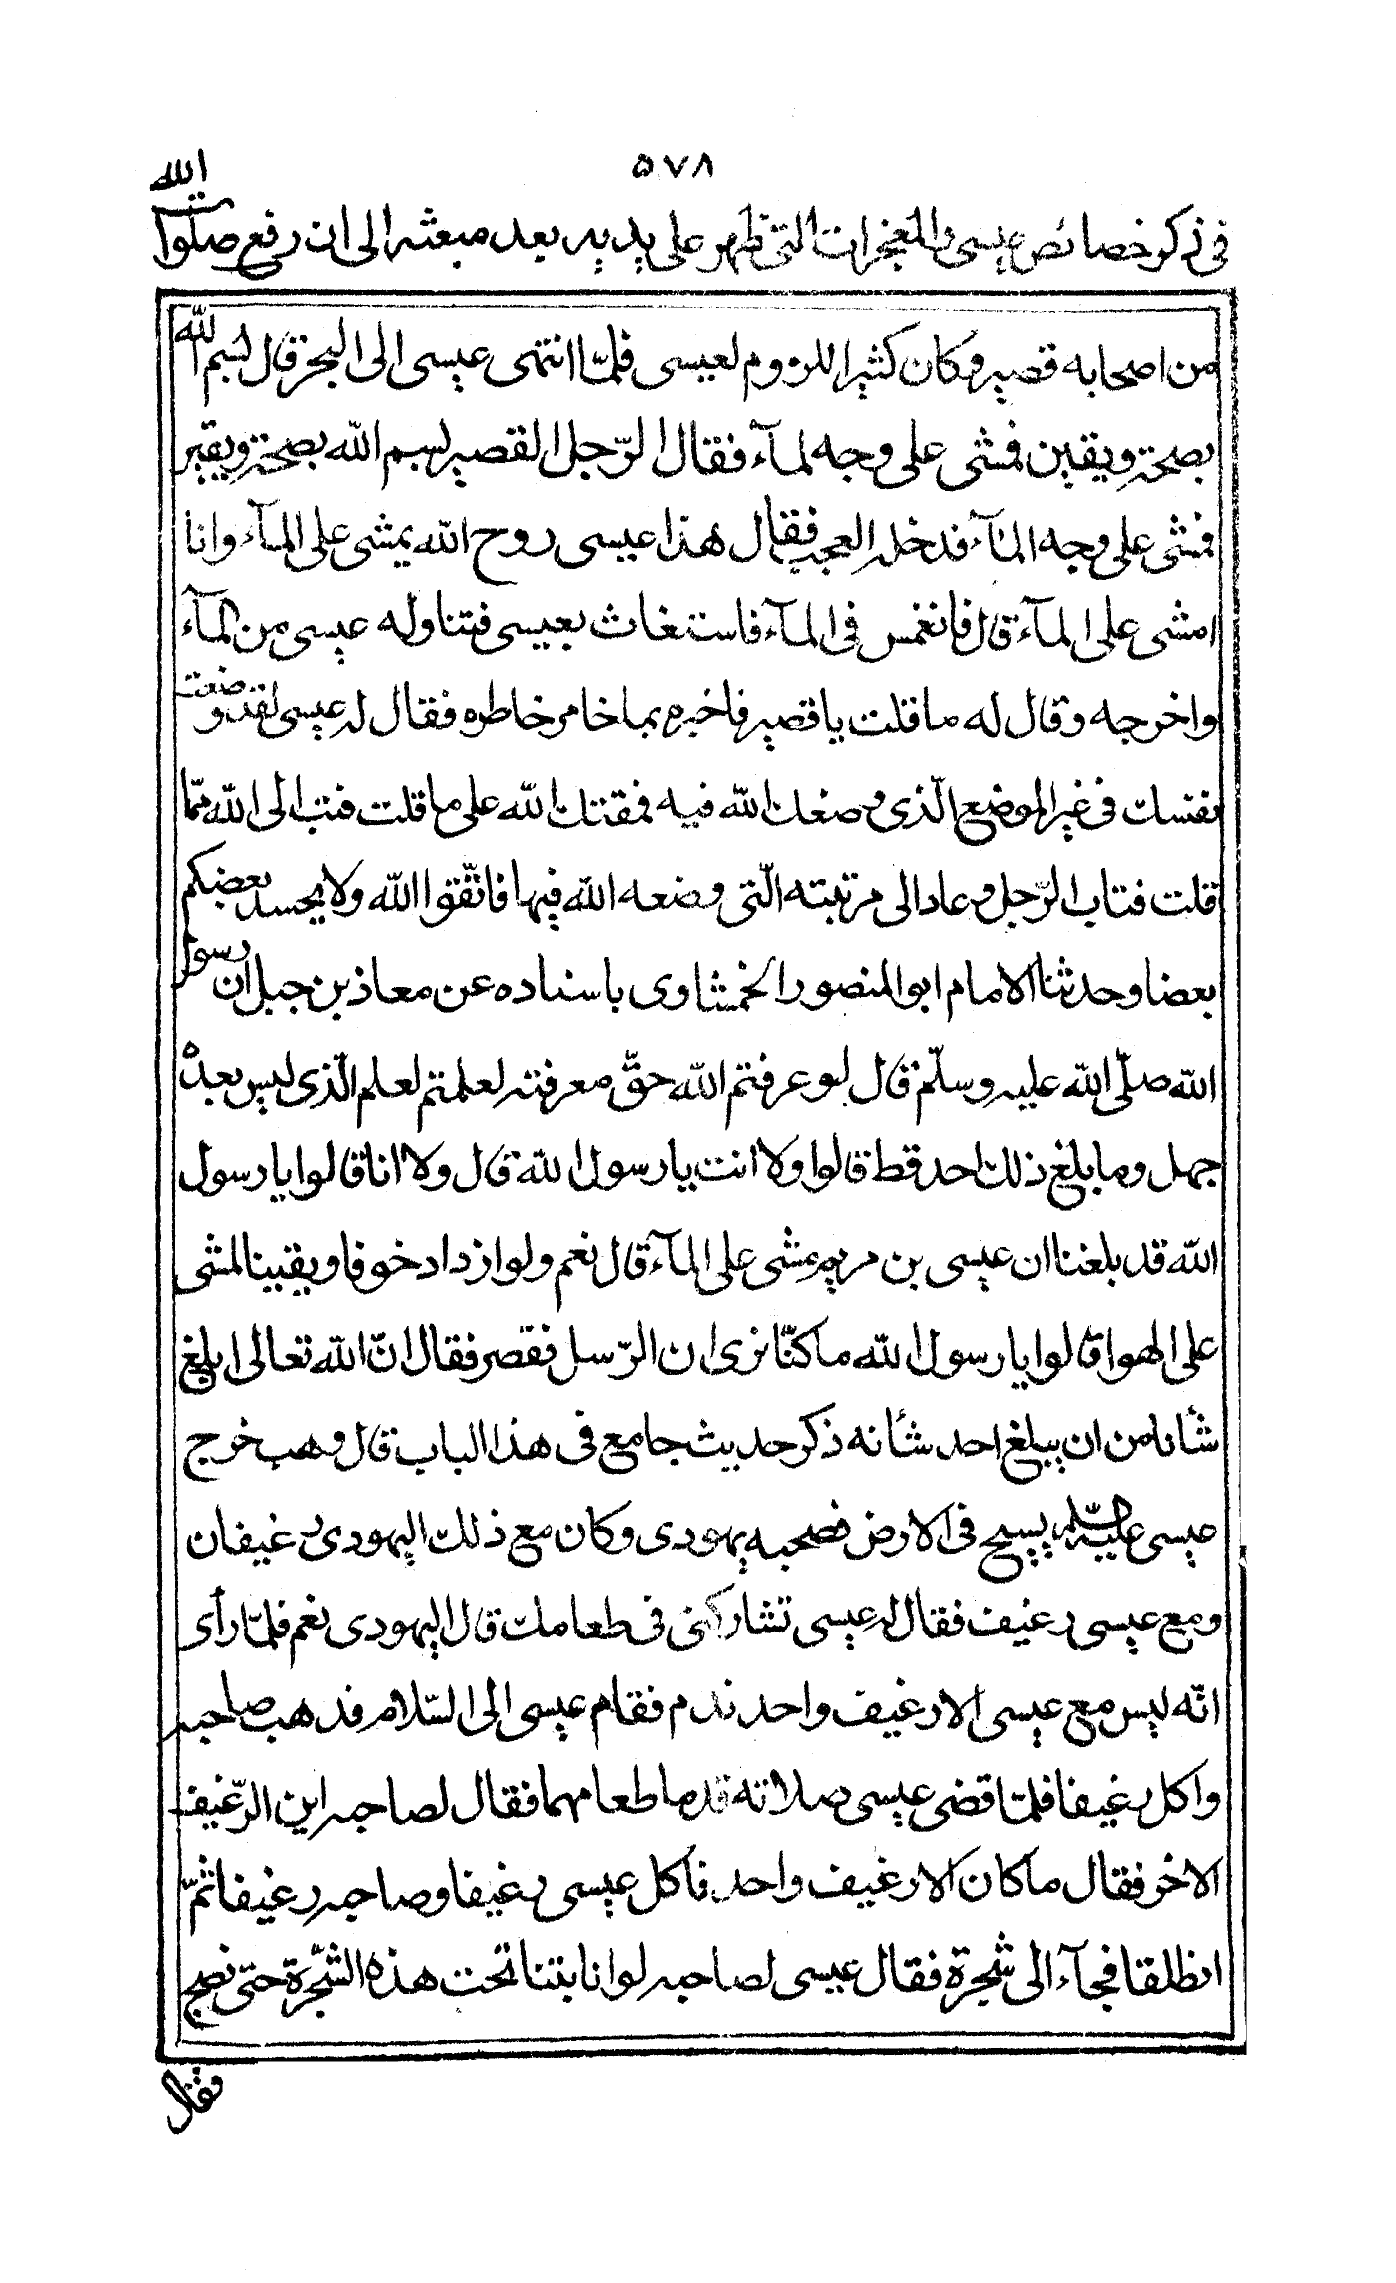 ٥٧٨
في ذكر خصائص عيسى والمعجزات التي ظهر على يديه بعد مبعثه الى ان رفع صلوات الله
من اصحابه قصير وكان كثير اللزوم لعيسى فلمّا انتهى عيسى الى البحر قال بسم الله
بصحة ويقين فمشى على وجه لمآء فقال الرّجل القصير بسم الله بصحة ويقين
فمشى على وجه المآء فدخله العجب فقال هذا عيسى روح الله يمشى على المآء وانا
امشى على المآء قال فانغمس في المآء فاستغاث بعيسى فتناوله عيسى من المآء
واخرجه وقال له ما قلت يا قصير فاخبره بما خامر خاطره فقال له عيسى لقد وضعت
نفسك في غير الموضع الّذى وضعك الله فيه فمقتك الله على ما قلت فتب الى الله ممّا
قلت فتاب الرّجل وعاد الى مرتبته الّتى وضعه الله فيها فاتّقوا الله ولا يحسد بعضكم
بعضا وحدثنا الامام ابو المنصور الخمشاوى باسناده عن معاذ بن جبل ان رسول
الله صلّى الله عليه وسلّم قال لو عرفتم الله حقّ معرفته لعلمتم لعلم الّذى ليس بعده
جهل وما بلغ ذلك احد قط قالوا ولا انت يا رسول الله قال ولا انا قالوا يا رسول
الله قد بلغنا ان عيسى بن مريم يمشى على المآء قال نعم ولو ازداد خوفا ويقينا لمشى
على الهوا قالوا يا رسول الله ما كنّا نرى ان الرّسل نقصر فقال انّ الله تعالى ابلغ
شأنا من ان يبلغ احد شأنه ذكر حديث جامع في هذا الباب قال وهب خرج
عيسى عليه السّلم يسيح في الارض فصحبه يهودى وكان مع ذلك اليهودى رغيفان
ومع عيسى رغيف فقال له عيسى تشاركنى في طعامك قال اليهودى نعم فلمّا رأى
انّه ليس مع عيسى الا رغيف واحد ندم فقام عيسى الى السّلام فذهب صاحبه
واكل رغيفا فلمّا قضى عيسى صلاته قدما طعامهما فقال لصاحبه اين الرّغيف
الاخر فقال ما كان الا رغيف واحد فاكل عيسى رغيفا وصاحبه رغيفا ثمّ
انطلقا فجآء الى شجرة فقال عيسى لصاحبه لو انا بتنا تحت هذه الشّجرة حتى نصبح
فقال